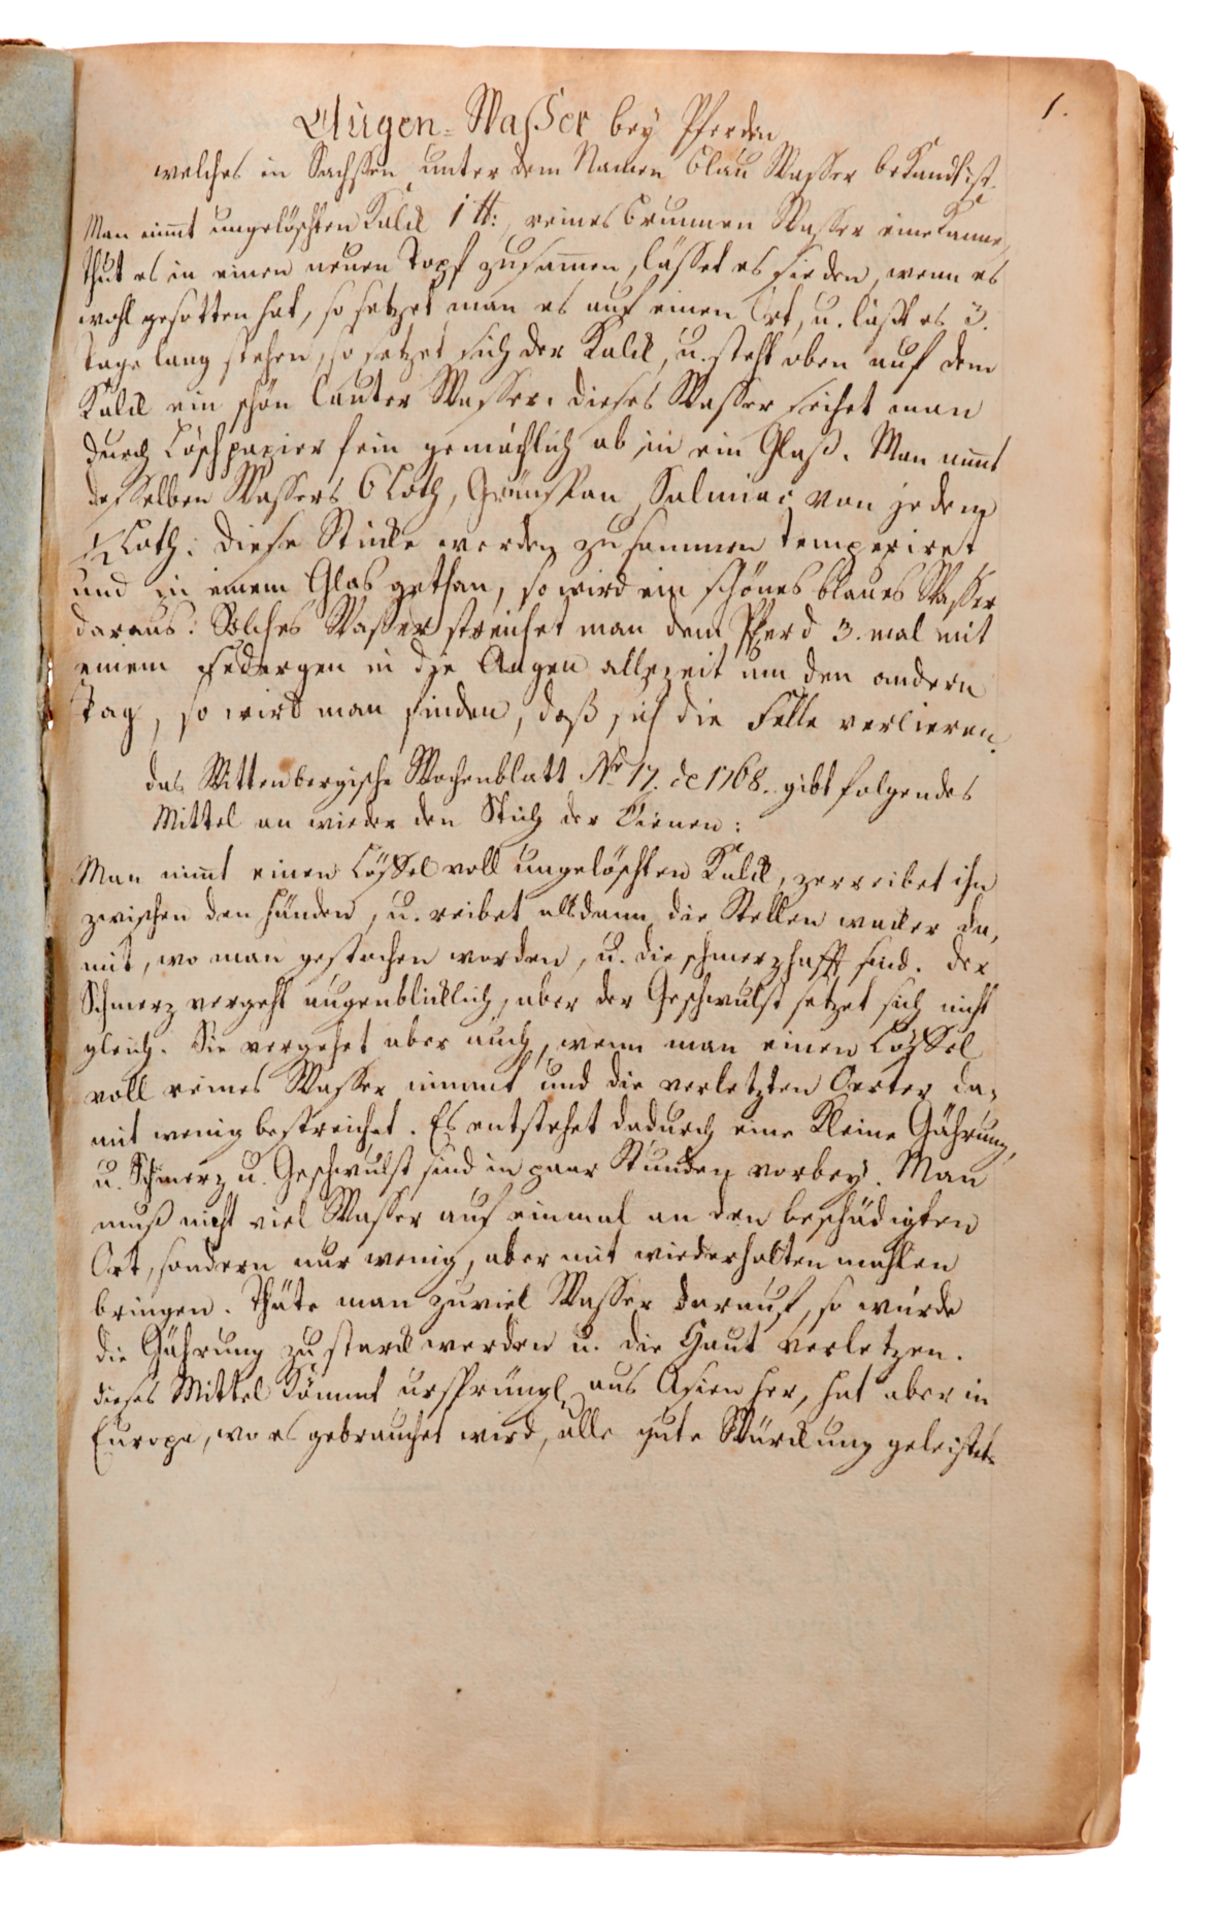 1.
Augen-Wasser bey Pferden
welches in Sachssen unter dem Namen blau Wasser bekandt ist.
Man nim̅t ungelöschten Kalck 1 ℔: reines Brunnen Wasser eine Kanne,
thut es in einen neuen Topf zusam̅en, lässet es sieden, wenn es
wohl gesotten hat, so setzet man es auf einen Ort, u. läßt es 3.
Tage lang stehen, so setzet sich der Kalck, u. steht oben auf dem
Kalck ein schön lauter Wasser. dieses Wasser seihet man
durch Löschpapier fein gemächlich ab in ein Glaß. Man nim̅t
desselben Wassers 6 Loth, Grünspan, Salmiac von jedem
½ Loth. Diese Stücke werden zusammen temperiret
und in einem Glas gethan, so wird ein schönes blaues Wasser
daraus. Solches Wasser streichet man dem Pferd 3. mal mit
einem Federgen in die Augen allezeit um den andern
Tag, so wird man finden, daß sich die Felle verlieren.
das Wittenbergische Wochenblatt No 17. de 1768. gibt folgendes
Mittel an wieder den Stich der Bienen:
Man nim̅t einen Löffel voll ungelöschten Kalck, zerreibet ihn
zwischen den Händen, u. reibet alsdann die Stellen wacker da,
mit, wo man gestochen worden, u. die schmerzhafft sind. Der
Schmerz vergeht augenblicklich, aber der Geschwulst setzet sich nicht
gleich. Sie vergehet aber auch, wenn man einen Löffel
voll reines Wasser nimmt und die verletzten Oerter da-
mit wenig bestreichet. Es entstehet dadurch eine kleine Gährung,
u. Schmerz u. Geschwulst sind in paar Stunden vorbey. Man
muß nicht viel Wasser auf einmal an den beschädigten
Ort, sondern nur wenig, aber mit wiederholten mahlen
bringen. Thäte man zuviel Wasser darauf, so würde
die Gährung zu starck werden u. die Haut verletzen.
dieses Mittel kömmt ursprüngl. aus Asien her, hat aber in
Europa, wo es gebrauchet wird, alle gute Würckung geleistet.